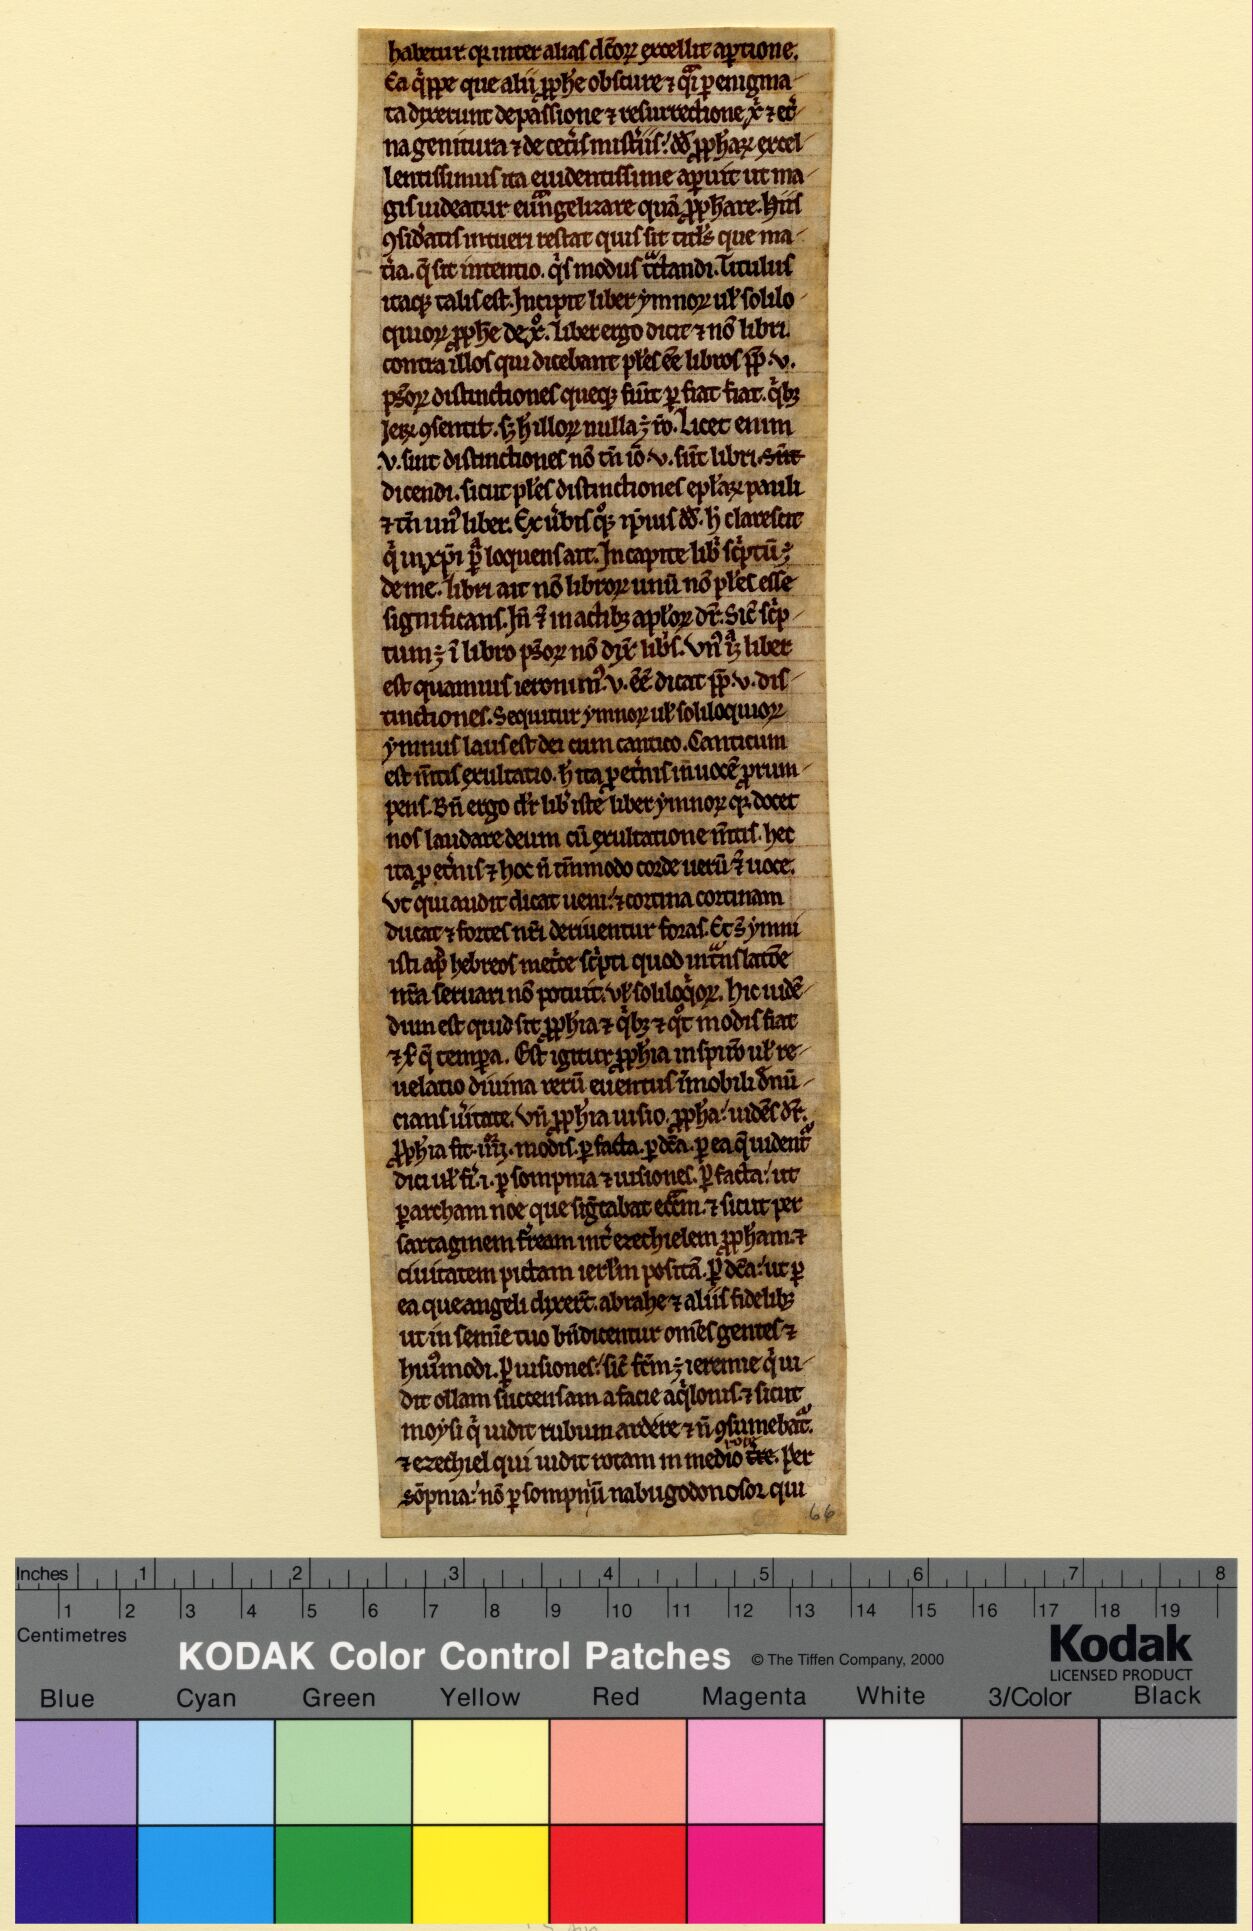 habetur. qꝛ inter alias dc̄oꝝ excellit aptione.
Ea q̇ppe que alii ꝓph̄e obscure ⁊ qͣi ꝑ enigma-
ta dixerunt de passione ⁊ resurrectione xͥ ⁊ et͛-
na genitura ⁊ de cet͛is mist͛iis: dd̄ ꝓphaꝝ excel-
lentissimus ita euidentissime apuit ut ma-
gis uideatur euāngelizare quā ꝓphare. Hiis
ꝯsid͛atis intueri restat quis sit titl̄s que ma-
t͛ia. q̄ sit intentio. qͥs modus tͣctandi. Titulus
itaqꝫ talis est. Incipit liber ymnoꝝ ul̄ solilo
quioꝝ ꝓphe de xͦ. Liber ergo dicit ⁊ nō libri.
contra illos qui dicebant pl̄es ēē libros ꝓp̄. v.
ps̄oꝝ distinctiones queqꝫ fiūt ꝑ fiat fiat. qͥbꝫ
Ieꝝ ꝯsentit. sꝫ h̄ illoꝝ nulla ꝫ rō. Licet enim
v. sint distinctiones nō tn̄ iō v. sūt libri sūt
dicendi. sicut pl̄es distinctiones epl̄aꝝ pauli
⁊ tn̄ unꝰ liber. Ex ūbis qͦqꝫ ip̄ius dd̄. h̄ clarescit
qͥ in xp̄i ꝑͣ loquens ait. In capite libͥ scͥptū ꝫ
de me. libri ait nō libroꝝ unū nō pl̄es esse
significans. Iñ ⁊ in actibꝫ apl̄oꝝ dr̄. Sic̄ scͥp-
tum ꝫ ī libro ps̄oꝝ nō dix̄ libͥs. Vnꝰ iͣꝫ liber
est quamuis ieronimꝰ v. ēē dicat ꝓp̄ v. dis-
tinctiones. Sequitur ymnoꝝ ul̄ soliloquioꝝ
ymnus laus est dei cum cantico. Canticum
est m̄tis exultatio. h̄ita ꝑ et͛nis in uocē ꝓrum-
pens. Bn̄ ergo dr̄ libͬ iste liber ymnoꝝ qꝛ docet
nos laudare deum cū exultatione m̄tis. hec
ita ꝑ et͛nis ⁊ hoc n̄ tm̄modo corde uerū ⁊ uoce.
Vt qui audit dicat ueni: ⁊ cortina cortinam
ducat ⁊ fontes nr̄i deriuentur foras. Et s̄ ymni
isti ap̄ hebreos met͛ce scͥpti quod in tͣnslatōe
nr̄a seruari nō potuit. ul̄ soliloqͥoꝝ. Hic uidē-
dum est quid sit ꝓphia ⁊ qͥbꝫ ⁊ qͦt modis fiat
⁊ ł q̄ tempa. Est igitur ꝓphia inspirō ul̄ re-
uelatio diuina rerū euentus īmobili d͛nū-
cians ūitate. Vn̄ ꝓphia uisio. ꝓpha: uidēs dr̄.
ꝓphia fit. iiiiͦꝫ. modis. ꝑ facta. ꝑ dc̄a. ꝑ ea q̄ uident͛
dici ul̄ fi͛. i. ꝑ sompnia ⁊ uisiones. ꝑ facta: ut
ꝑ archam noe que sig͛tabat eccͣm. ⁊ sicut per
sartaginem f͛ream int͛ ezechielem ꝓpham. ⁊
ciuitatem pictam ierl̄m positā. ꝑ dc̄a: ut ꝑ
ea que angeli dixer̄t abrahe ⁊ aliis fidelibꝫ
ut in semīe tuo bn̄dicentur om̄es gentes ⁊
huiꝰmodi. ꝑ uisiones: sic̄ fc̄m ꝫ ieremie qͥ ui-
dit ollam succensam a facie aqͥlonis. ⁊ sicut
moysi qͥ uidit rubum ardere ⁊ n̄ ꝯsumebat͛.
⁊ ezechiel qui uidit rotam in medio rote. Per
sōpnia: nō ꝑ sompniū nabugodonosor qui
66
Inches 1 2 3 4 5 6 7 8
1 2 3 4 5 6 7 8 9 10 11 12 13 14 15 16 17 18 19
Centimetres
KODAK Color Control Patches © The Tiffen Company, 2000
Kodak
LICENSED PRODUCT
Blue Cyan Green Yellow Red Magenta White 3/Color Black